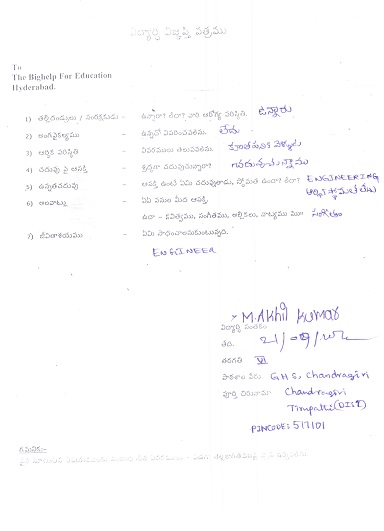 విద్యార్థి విజ్ఞప్తి పత్రము
To
The Bighelp For Education
Hyderabad.
1) తల్లిదండ్రులు / సంరక్షకుడు - ఉన్నారా? లేదా? వారి ఆరోగ్య పరిస్థితి. ఉన్నారు
2) అంగవైకల్యము - ఉన్నచో వివరించవలెను. లేదు
3) ఆర్థిక పరిస్థితి - వివరములు తెలుపవలెను.
4) చదువు పై ఆసక్తి - శ్రద్ధగా చదువుచున్నారా? చదువుచున్నాము
5) ఉన్నతచదువు - ఆసక్తి ఉంటే ఏమి చదువుతారు, స్తోమత ఉందా? లేదా? ENGINEERING
ఆర్థిక స్తోమత లేదు
6) అలవాట్లు - ఏమి పనుల మీద ఆసక్తి.
ఉదా - కవిత్వము, సంగీతము, ఆర్టికలు, నాట్యము మొ సంగీతం
7) జీవితాశయము - ఏమి సాధించాలనుకుంటున్నది.
ENGINEER
M.Akhil Kumar
విద్యార్థి సంతకం
తేది. 21/09/
తరగతి VI
పాఠశాల పేరు G.H.S, Chandragiri
పూర్తి చిరునామా Chandragiri
Tirupathi(DIST)
PINCODE: 517101
గమనిక:-